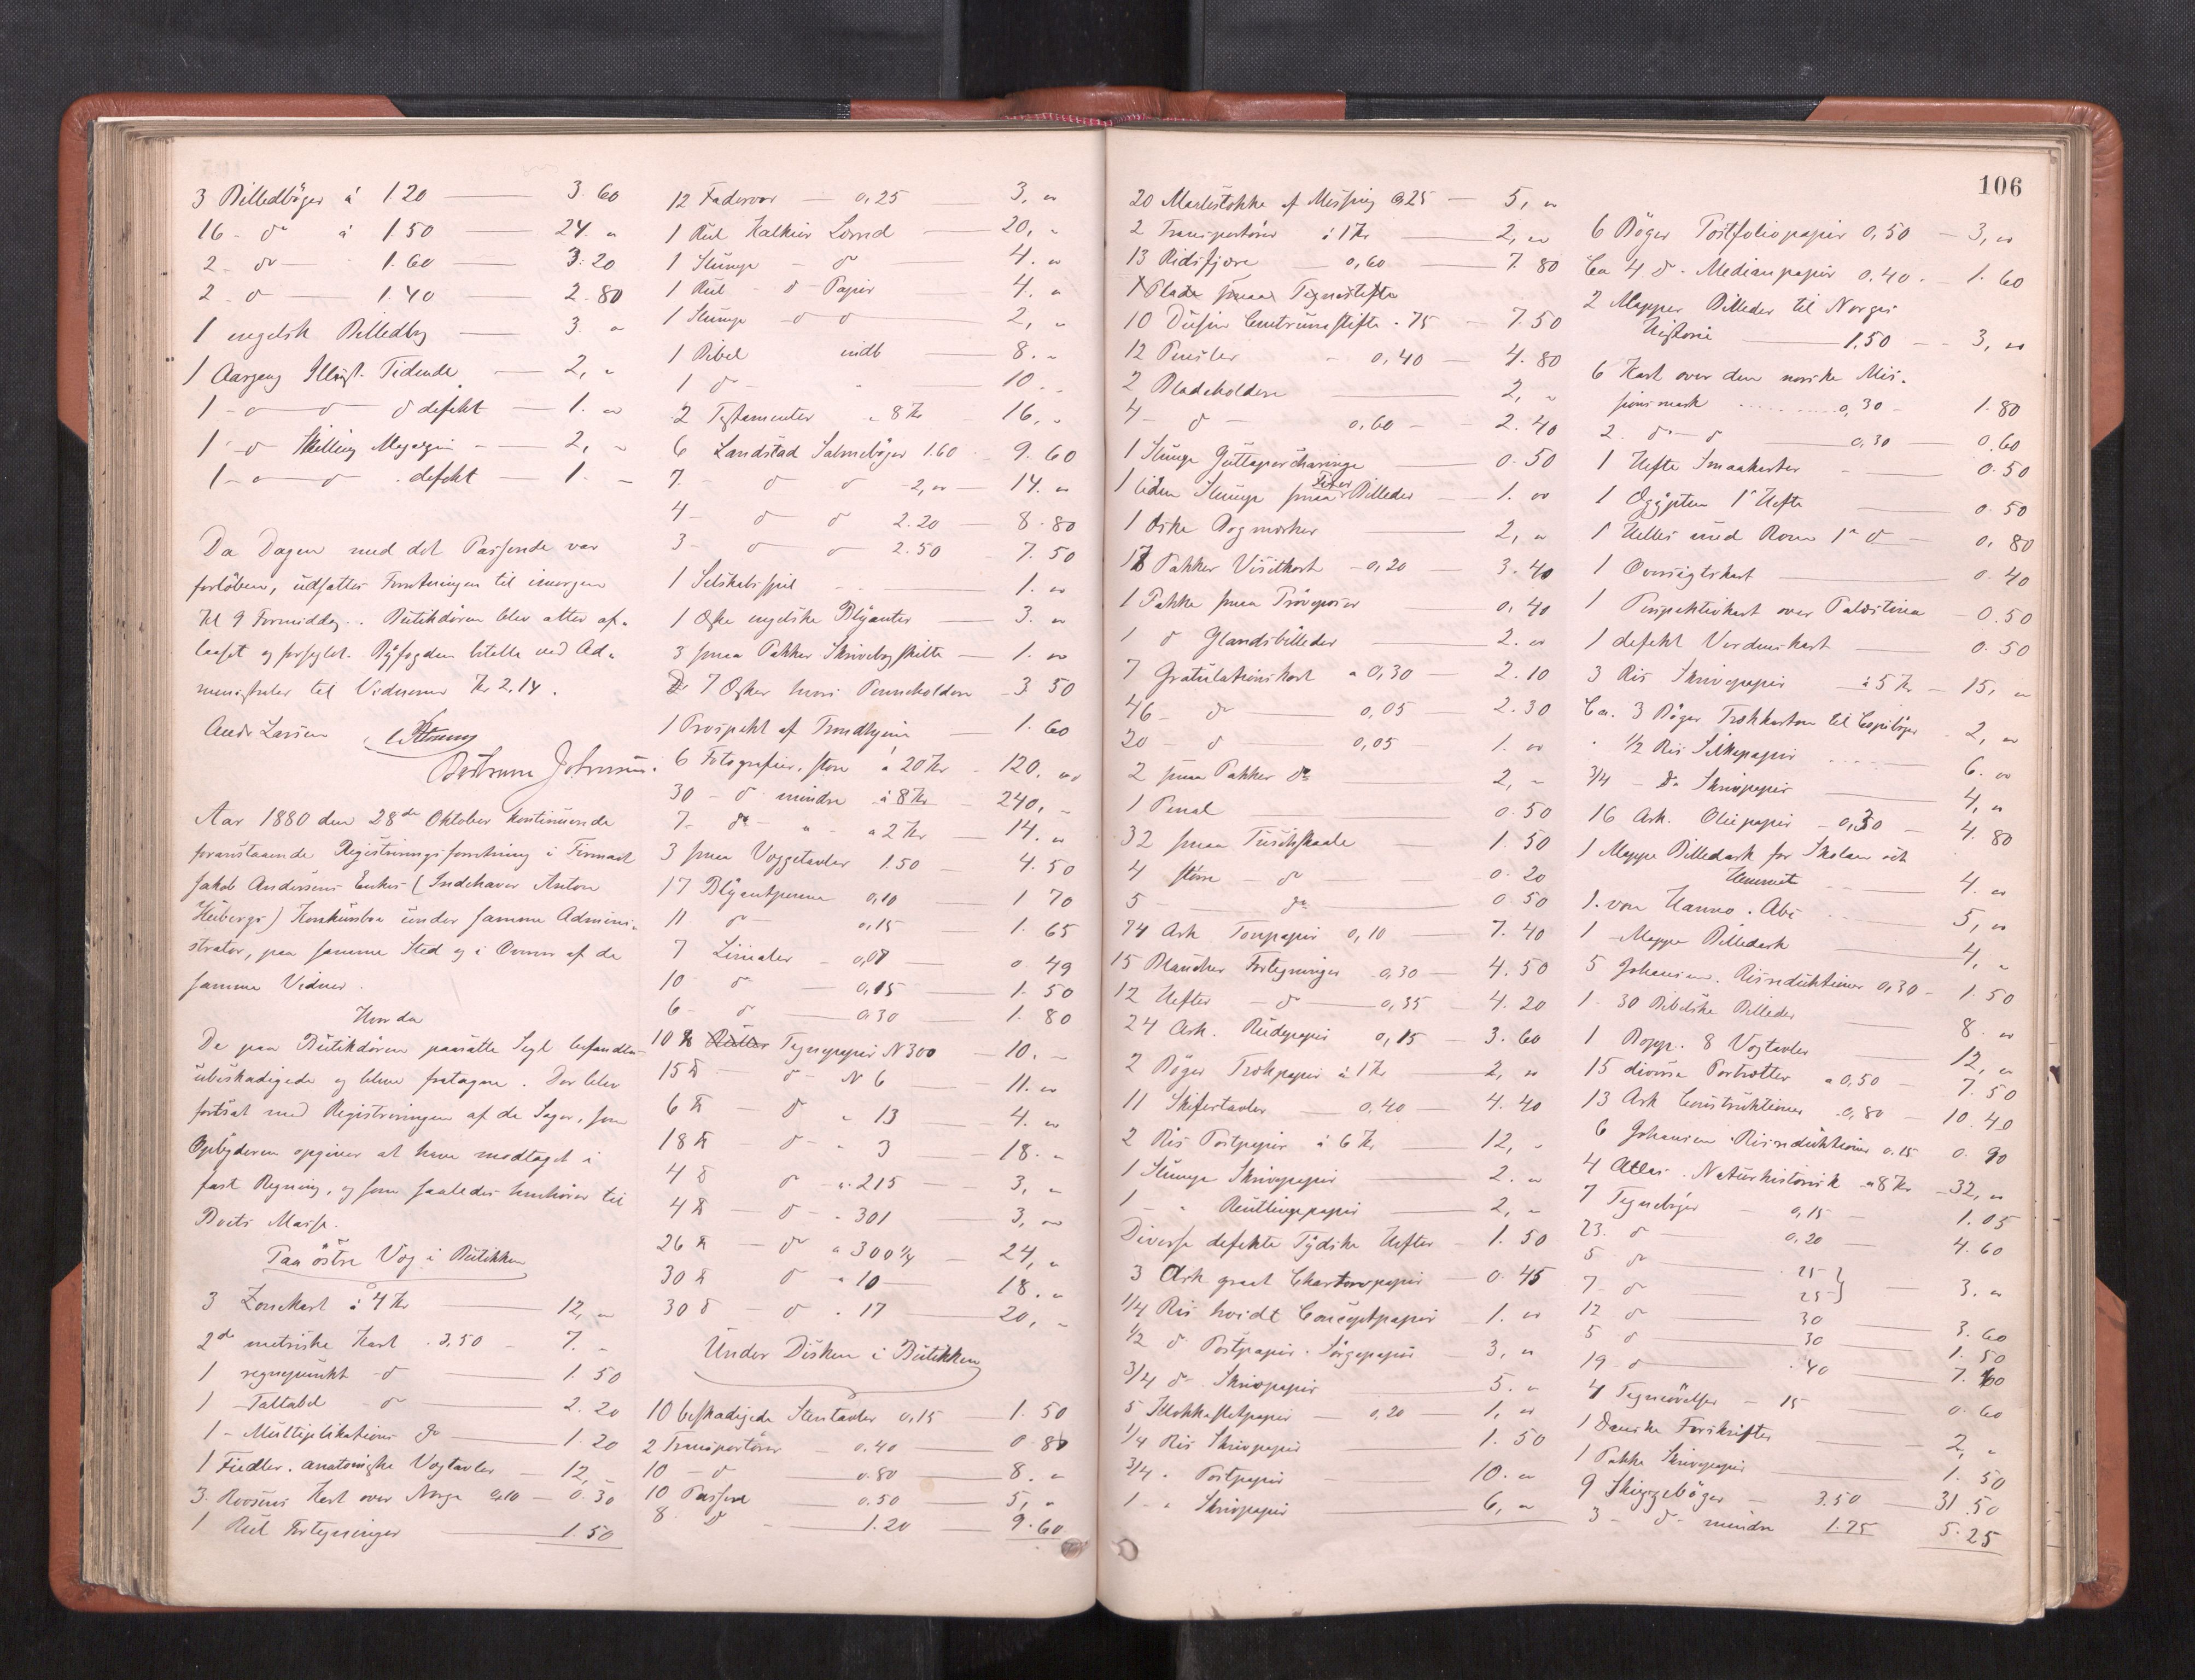 3 Billedbøger á 1.20 — 3.60
16 - do á 1.50 — 24. „
2 - do — 1.60 — 3.20
2 - d — 1.40 — 2.80
1 engelsk Billedbog — 3. „
1 Aargang Illust. Tidende — 2, „
1 - d d d defekt — 1. „
1 - d Skilling Magazin — 2, „
1 - d d . defekt — 1. „
Da Dagen med det Passende var
forløben, udsattes Forretningen til imorgen
Kl 9 Formiddag. Butikdøren blev atter af-
laaset og forseglet. Byfogden bitalte ved Ad-
ministrator til Vidnerne Kr 2.14.
Andr Larsen
Johnsen.
Aar 1880 den 28de Oktober kontinuerede
foranstaaende Registreringsforretning i Firmaet
Jakob Andersens Enkes (Indehaver Anton
Heibergs) Konkursbo under samme Admini-
strator, paa samme Sted og i Overvær af de
samme Vidner.
Hvorda
De paa Butikdøren paasatte Segl befandtes
ubeskadigede og bleve fratagne. Der blev
fortsat med Registreringen af de Sager, som
Opbyderen opgiver at have modtaget i
fast Regning, og som saaledes henhører til
Boets Masse.
Paa østre Væg i Butikken
3 Zonekart á 4 Kr — 12, „
2 do metriske Kart . 3,50 — 7. „
1 regnepunkt d — 1.50
1 Taltabel d — 2.20
1 - Multiplikations do — 1.20
1 Fiedler. anatomiske Vægtavler — 12, „
3. Roosens Kart over Norge 0,10 — 0.30
1 Rul Fortegninger — 1.50
12 Fadervor — 0,25 3, „
1 Rul Kalkier Lerred — 20, „
1 Stump - d — 4. „
1 Rul - d Papir 4. „
1 Stump - d d — 2, „
1 Bibel indb — 8. „
1 d - „ — 10. „
2 Testamenter á 8 Kr — 16, „
6 Landstad Salmebøger 1.60 9.60
7. d d 2, „ — 14. „
4 - d d 2.20 — 8.80
3 - d d 2.50 7.50
1 Selskabsspil 1. „
1 Æske engelske Blyanter — 3. „
3 smaa Pakker Skrivebogskilte — 1. „
7 Æsker hvori Penneholdere — 3.50
1 Prospekt af Trondhjem — 1.60
6 Fotografier, store á 20 Kr 120. „
30 - d mindre á 8 Kr 240, „
7 - do „ á 2 Kr — 14. „
3 smaa Væggetavler 1.50 4.50
17 Blyantpenne 0,10 1.70
11 d 0,15 1.65
7 Linialer — 0,07 — 0.49
10 d — 0,15 1.50
6 - d 0.30 1.80
10 ℔ Tegnepapir N 300 — 10. „
15 ℔ d N 6 11. „
6 ℔ — d „ 13 4. „
18 ℔ — d „ 3 18. „
4 ℔ d „ 215 — 3, „
4 ℔ — d „ 301 3, „
26 ℔ — do „ 300 ¼ 24, „
30 ℔ d „ 10 — 18. „
30 ℔ d „ 17 20, „
Under Disken i Butikken
10 beskadigede Stentavler 0,15 1.50
2 Transportører — 0.40 — 0.80
10 - d — 0.80 8. „
10 Passere 0.50 5, „
8 d — 1.20 — 9.60
106
20 Maalestokke af Messing 0,25 — 5, „
2 Transportører á 1 Kr — 2, „
13 Ridsfjære — 0,60 — 7.80
1 Plade smaa Tegnestifte
10 Dusin Centrumstifte . 75 7.50
12 Pensler — 0,40 — 4.80
2 Bladeholdere — 2, „
4 - d — 0,60 — 2.40
1 Stump Guttaperchaslange — 0.50
1 liden Stump smaa Billeder — 1. „
1 Æske Bogmærker — 2, „
17 Pakker Visitkort — 0,20 — 3.40
1 Pakke smaa Prøveposer 0,40
1 d Glandsbilleder — 2. „
7 Gratulationskort á 0,30 — 2.10
46 - do — 0,05 2.30
20 - d — 0,05 1. „
2 smaa Pakker do — 2, „
1 Penal — 0.50
32 smaa Tuschskaale — 1.50
4 større - d — 0.20
5 do — 0.50
74 Ark Tonpapir 0,10 7.40
15 Blancher Fortegninger 0,30 — 4.50
12 Hefter — do — 0,35 4.20
24 Ark. Rudepapir 0,15 3.60
2 Bøger Trækpapir á 1 Kr — 2, „
11 Skifertavler — 0,40 — 4.40
2 Ris Postpapir á 6 Kr — 12, „
1 Stump Skrivepapir — 2. „
1 - „ Reutlingepapir — 2, „
Diverse defekte Tydske Hefter — 1.50
3 Ark graat papir — 0.45
¼ Ris hvidt Conceptpapir — 1. „
½ d Postpapir . Sørgepapir — 3, „
¾ do . Skrivepapir — 5. „
5 papir — 0,20 — 1, „
¼ Ris Skrivepapir — 1.50
¾ „ Postpapir 10. „
1 - „ Skrivepapir — 6, „
6 Bøger Postfoliopapir 0,50 — 3, „
Ca 4 d . Medianpapir 0.40. — 1.60
2 Mapper Billeder til Norges
Historie — 1.50 — 3, „
6 Kart over den norske Mis-
sionsmark ..... 0,30 — 1.80
2. do d — 0,30 — 0.60
1 Hefte Smaakarter — 0.50
1 Ægypten 1ste Hefte — 0.50
1 Hellas med Rom 1ste d — 0,80
1 Oversigtskart — 0.40
1 Perspektivkart over Palæstina — 0.50
1 defekt Verdenskart — 0.50
3 Ris Skrivepapir á 5 Kr — 15, „
Ca. 3 Bøger Trækkarton til Copibøger 2, „
½ Ris Silkepapir — 6. „
¾ — do Skrivepapir — 4, „
16 Ark. Oliepapir — 0,30 — 4.80
1 Mappe Billedark for Skolan och
Hemmet — 4. „
1. von Hanno . Abc — 5, „
1 Mappe Billedark — 4, „
5 Johansens. Risreduktioner 0,30 — 1.50
1 - 30 Bibelske Billeder — 8. „
1 Bopp. 8 Vægtavler — 12, „
15 diverse Portrætter á 0,50 — 7.50
13 Ark Construktioner . 0,80 — 10.40
6 Johansens Risreduktioner 0.15 0.90
4 Atlas . Naturhistorisk á 8 Kr — 32, „
7 Tegnebøger — 0,15 — 1.05
23. d — 0.20 4.60
5 d — . 25 }
7 - d — 25 } — 3. „
12 d — 30 — 3.60
5 d — 30 — 1.50
19 d — . 40 7.60
4 Tegneøvelser — 15 — 0.60
1 Danske Forskrifter — 2, „
1 Pakke Skrivepapir — 1.50
9 Skizzebøger — 3.50 — 31.50
3 - d - mindre 1.75 5.25